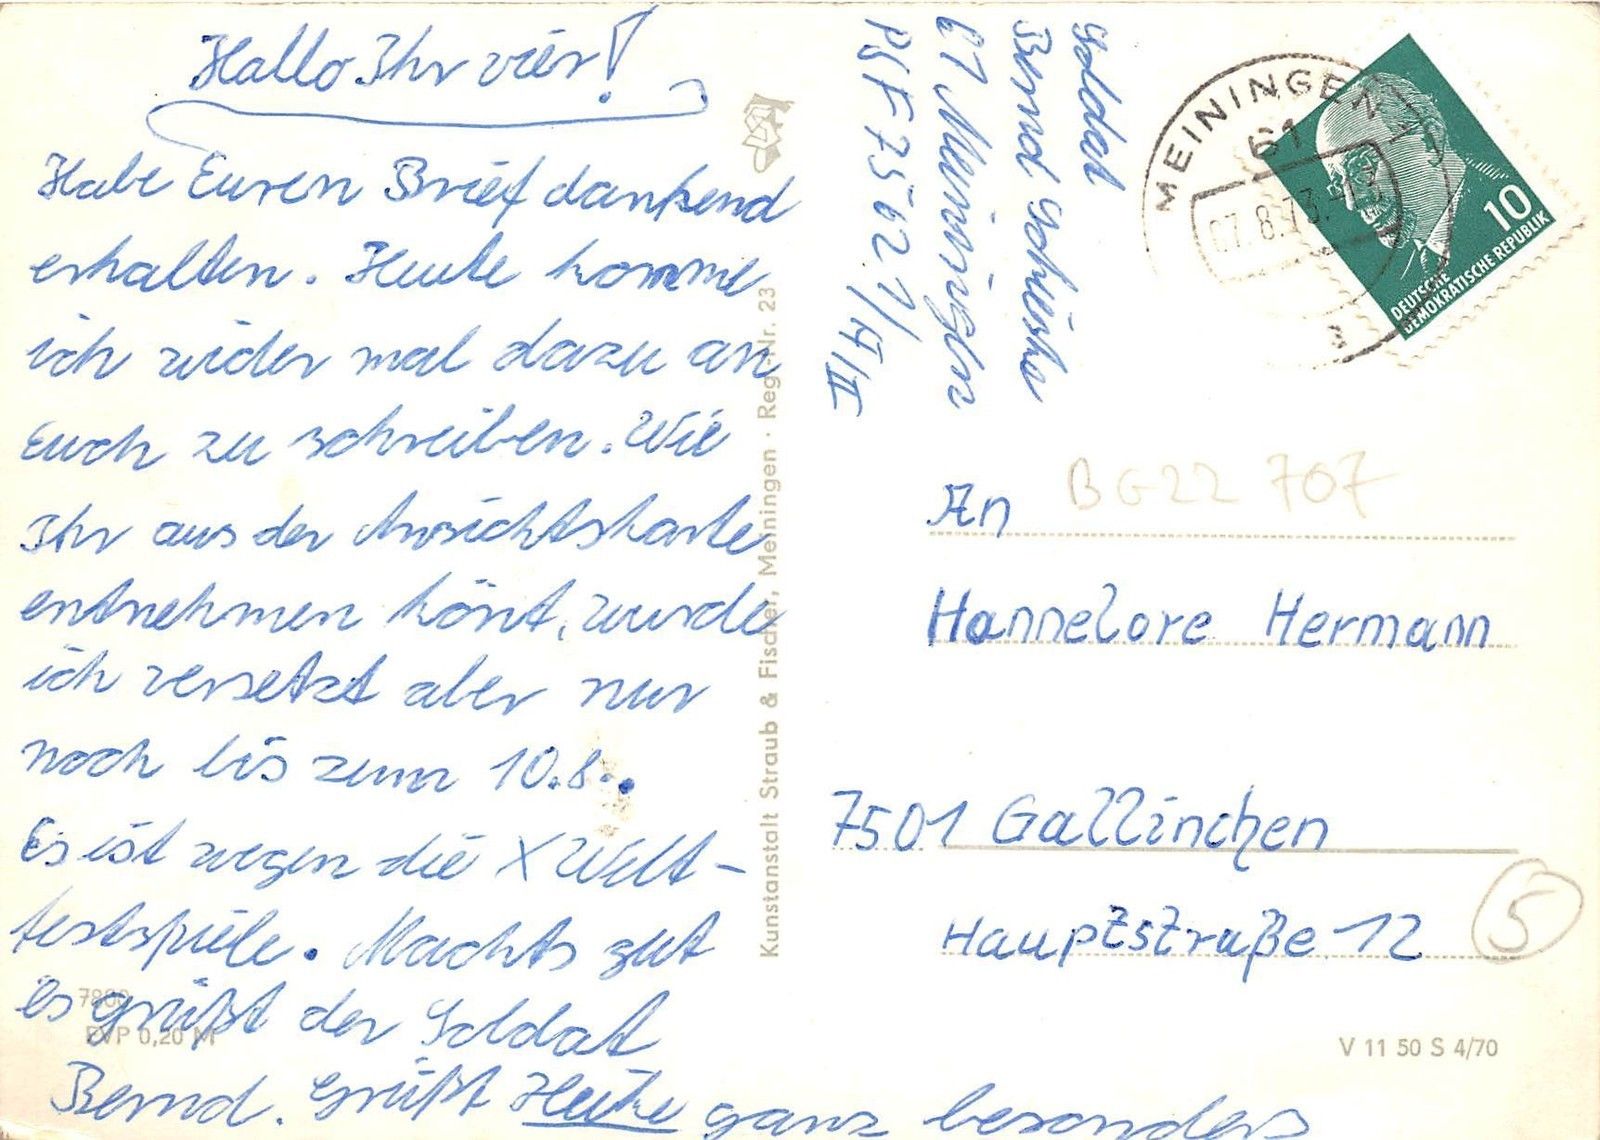 Hallo Ihr vier!
Habe Euren Brief dankend
erhalten. Heute komme
ich wider mal dazu an
Euch zu schreiben. Wie
Ihr aus der Ansichtskarte
entnehmen könt, wurde
ich versetzt aber nur
noch bis zum 10.8..
Es ist wegen die X Welt-
festspiele. Machts gut
Es grüßt der Soldat
Bernd. Grüßt Heike ganz besonders
7800
EVP 0,20 M
Kunstanstalt Straub & Fischer, Meiningen · Reg.-Nr. 23
Soldat
Bernd
61 Meiningen
PSF 75621/A II
MEININGEN 1
61
07.8.73
a
10
DEUTSCHE
DEMOKRATISCHE REPUBLIK
BG22 707
An
Hannelore Hermann
7501 Gallinchen
Hauptstraße 12
5
V 11 50 S 4/70